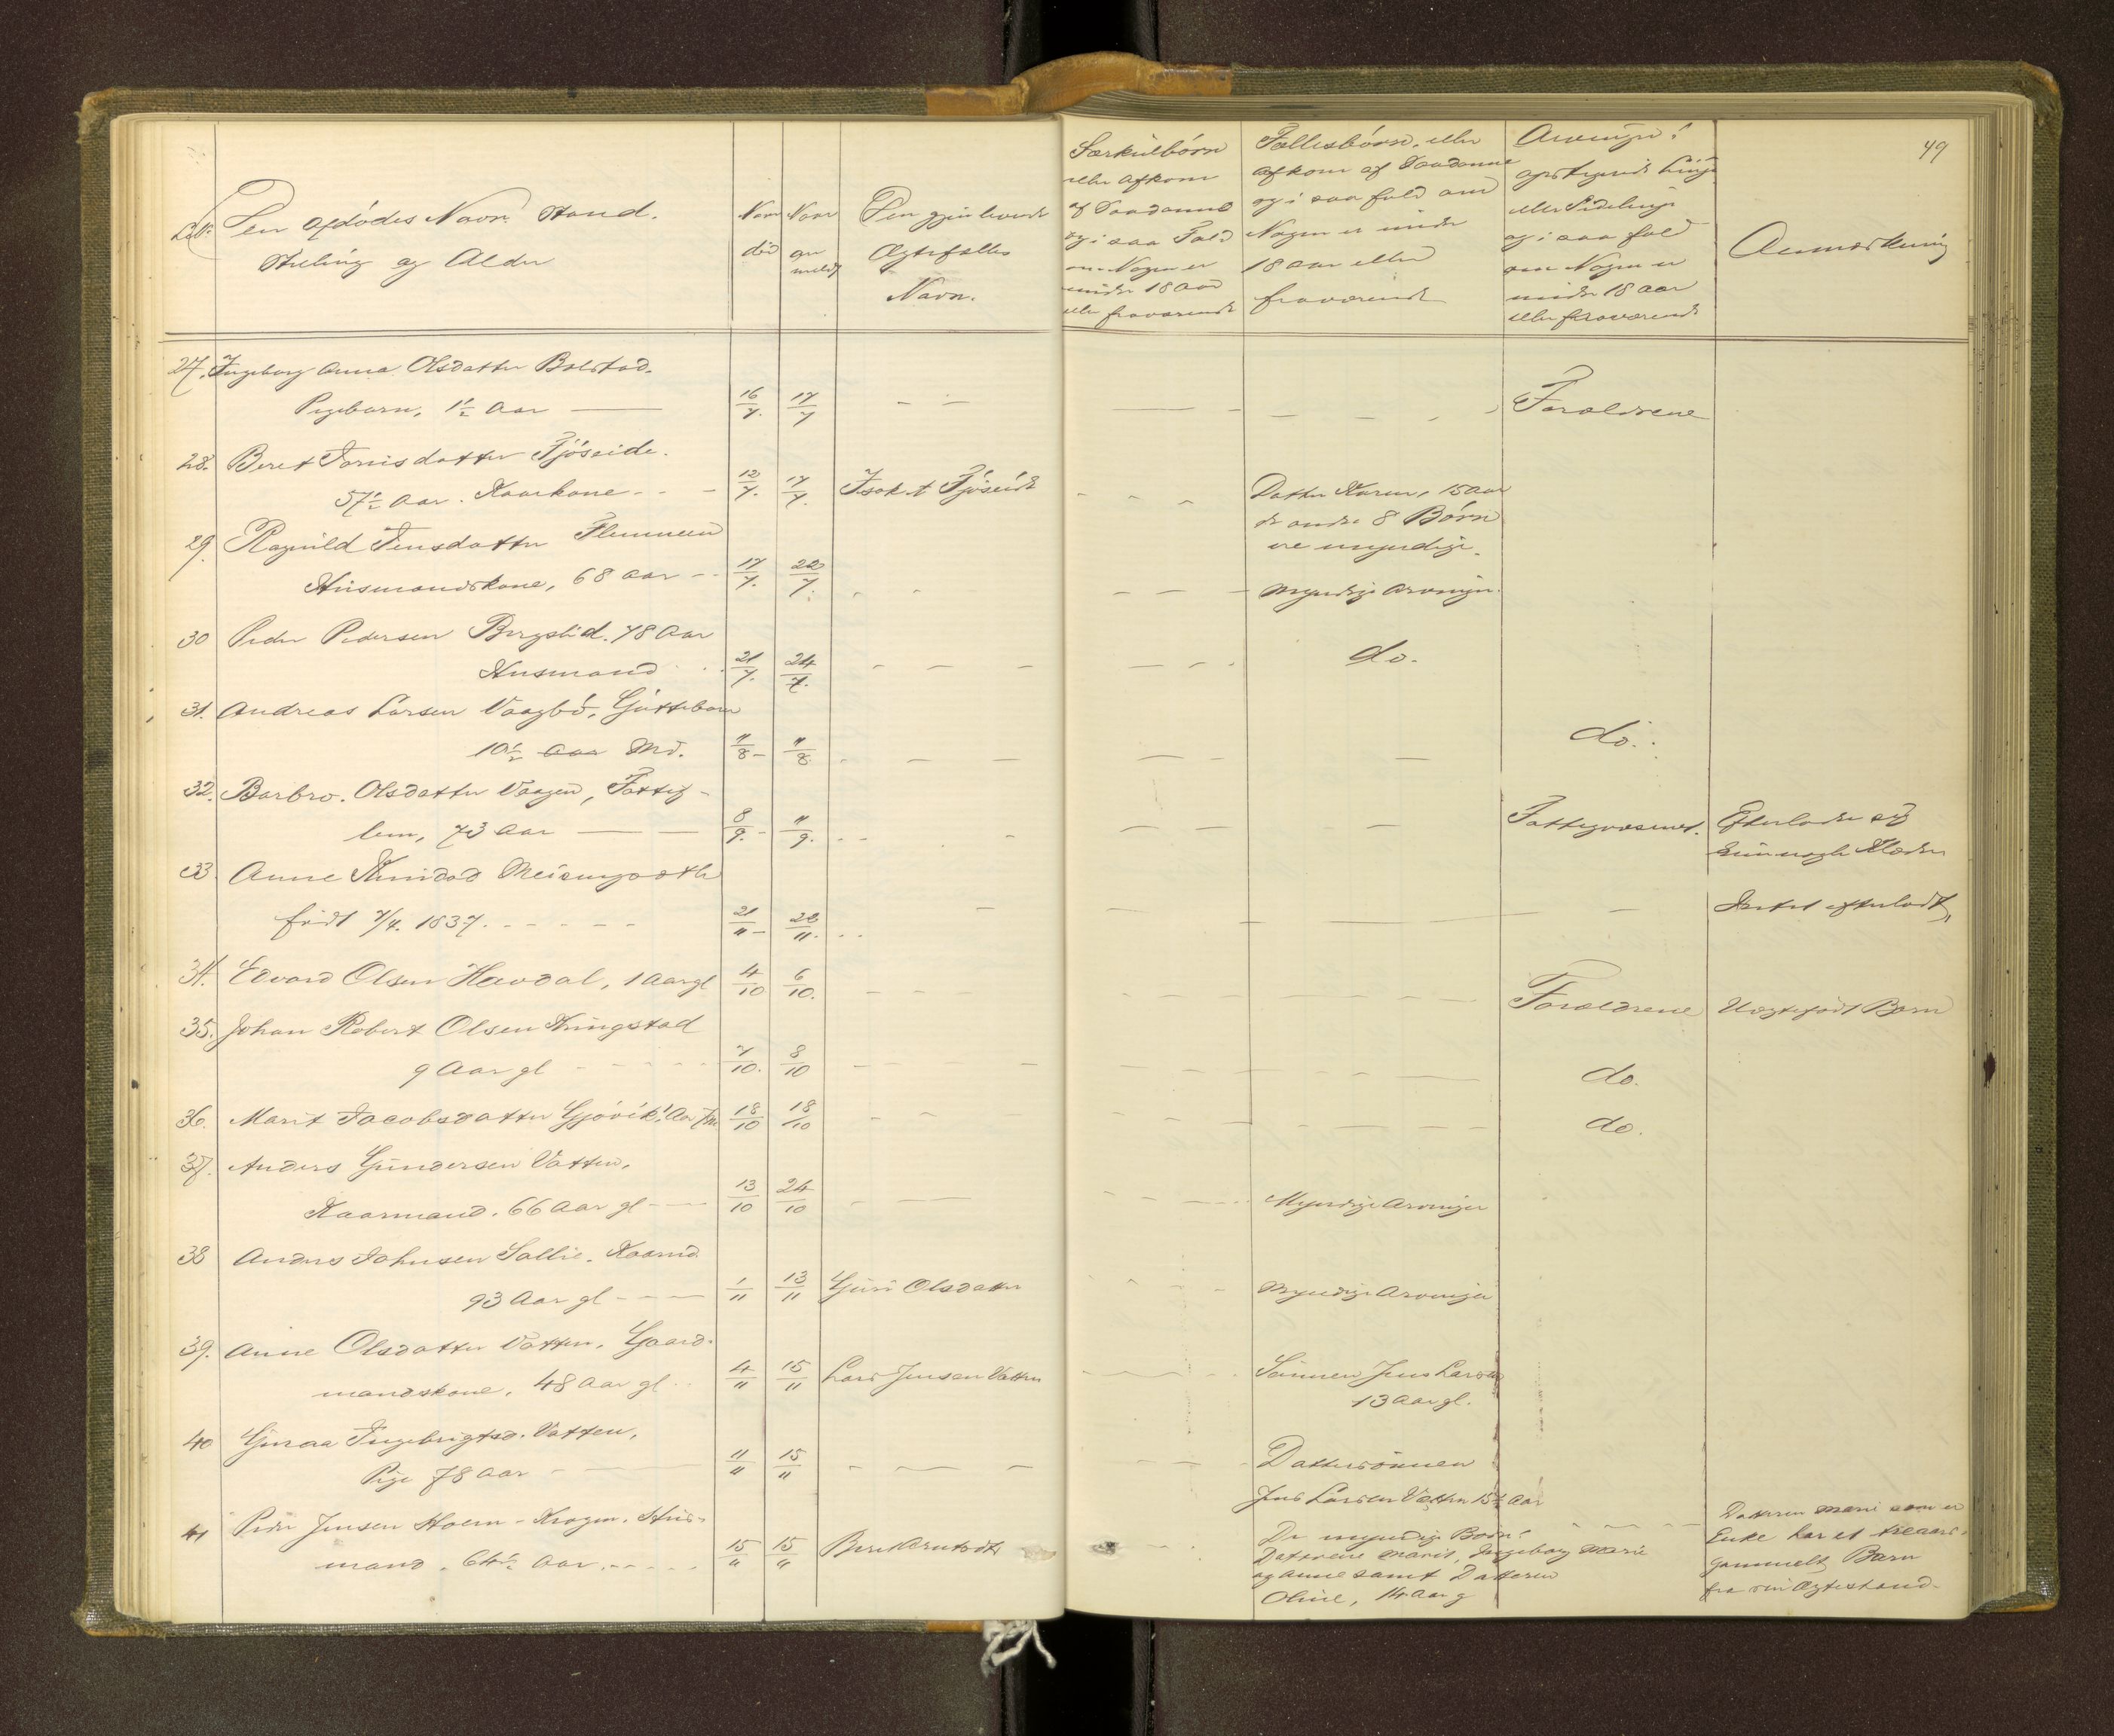 49
Den afdödes Navn. Stand.
Stilling og Alder
Naar död
Naar anmeldt
Den gjenlevende
Ægtefælles
Navn.
Særkulbörn
eller Afkom
af Saadanne
og i saa Fald
om Nogen er
under 18 Aar
eller fraværende
Fællesbörn, eller
Afkom af Saadanne
og i saa fald om
Nogen er under
18 Aar eller
fraværende
Arvinger i
opstigende Linje
eller Sidelinje
og i saa fald
om Nogen er
under 18 Aar
eller fraværende
Anmærkning
27. Ingeborg Anna Olsdatter Bolstad.
Pigebarn, 1½ Aar — 16/7. 17/7 — — Forældrene
28. Beret Tønisdatter Fjöseide.
57½ Aar. Kaarkone - - 12/7. 17/7. Isak A Fjöseide - - - Datter Karen, 15 Aar
de andre 8 Börn
ere myndige.
29. Ragnild Jensdatter Flemmen
Husmandskone, 68 Aar -- 17/7. 22/7. - - — — Myndige Arvinger.
30 Peder Pedersen Bergslid. 78 Aar
Husmand . . 21/7. 24/7. - — — — do.
31. Andreas Larsen Vaagbö, Guttebarn
10½ Aar Md. 11/8- 11/8. - — — — do.
32. Barbro. Olsdatter Vaagen, Fattig-
lem, 73 Aar — — 8/9.- 11/9. - - — Fattigvæsenet. Efterlader sig
kun nogle Klæder
33. Anne
födt 7/4. 1837. - - - 21/11- 22/11. . . . — Intet efterladt
34. Edvard Olsen Havdal, 1 Aar gl 4/10 6/10. - - - Forældrene Uægtefödt Barn
35. Johan Robert Olsen Kringstad
9 Aar gl - - - 7/10. 8/10 — — — do.
36. Marit Jacobsdatter Gjövik, 1 Aar 7 M 18/10 18/10 - - - do.
37. Anders Gundersen Vatten,
Kaarmand. 66 Aar gl - — 13/10 24/10 - — — Myndige Arvinger
38 Anders Johnsen Sollie. Kaarmd.
93 Aar gl - - — 1/11 13/11 Guri Olsdatter - - - Myndige Arvinger
39. Anne Olsdatter Vatten. Gaard-
mandskone, 48 Aar gl . . 4/11 15/11 Lars Jensen Vatten — Sönnen Jens Larsen
13 Aar gl.
40 Ingebrigtsd. Vatten,
Pige 78 Aar - — 11/11 15/11 - — — Dattersönnen
Jens Larsen Vatten 13½ Aar
41 Peder Jensen Holm-Krogen. Hus-
mand. 64½ Aar. - - - 15/11 15/11 Beret Arntsdtr - - De myndige Börn:
Dattrene Marit, Ingeborg Marie
og Anne samt Datteren
Oline, 14 Aar g
Datteren Marie som er
Enke har et treaars
gammelt Barn
fra sin Ægtestand.